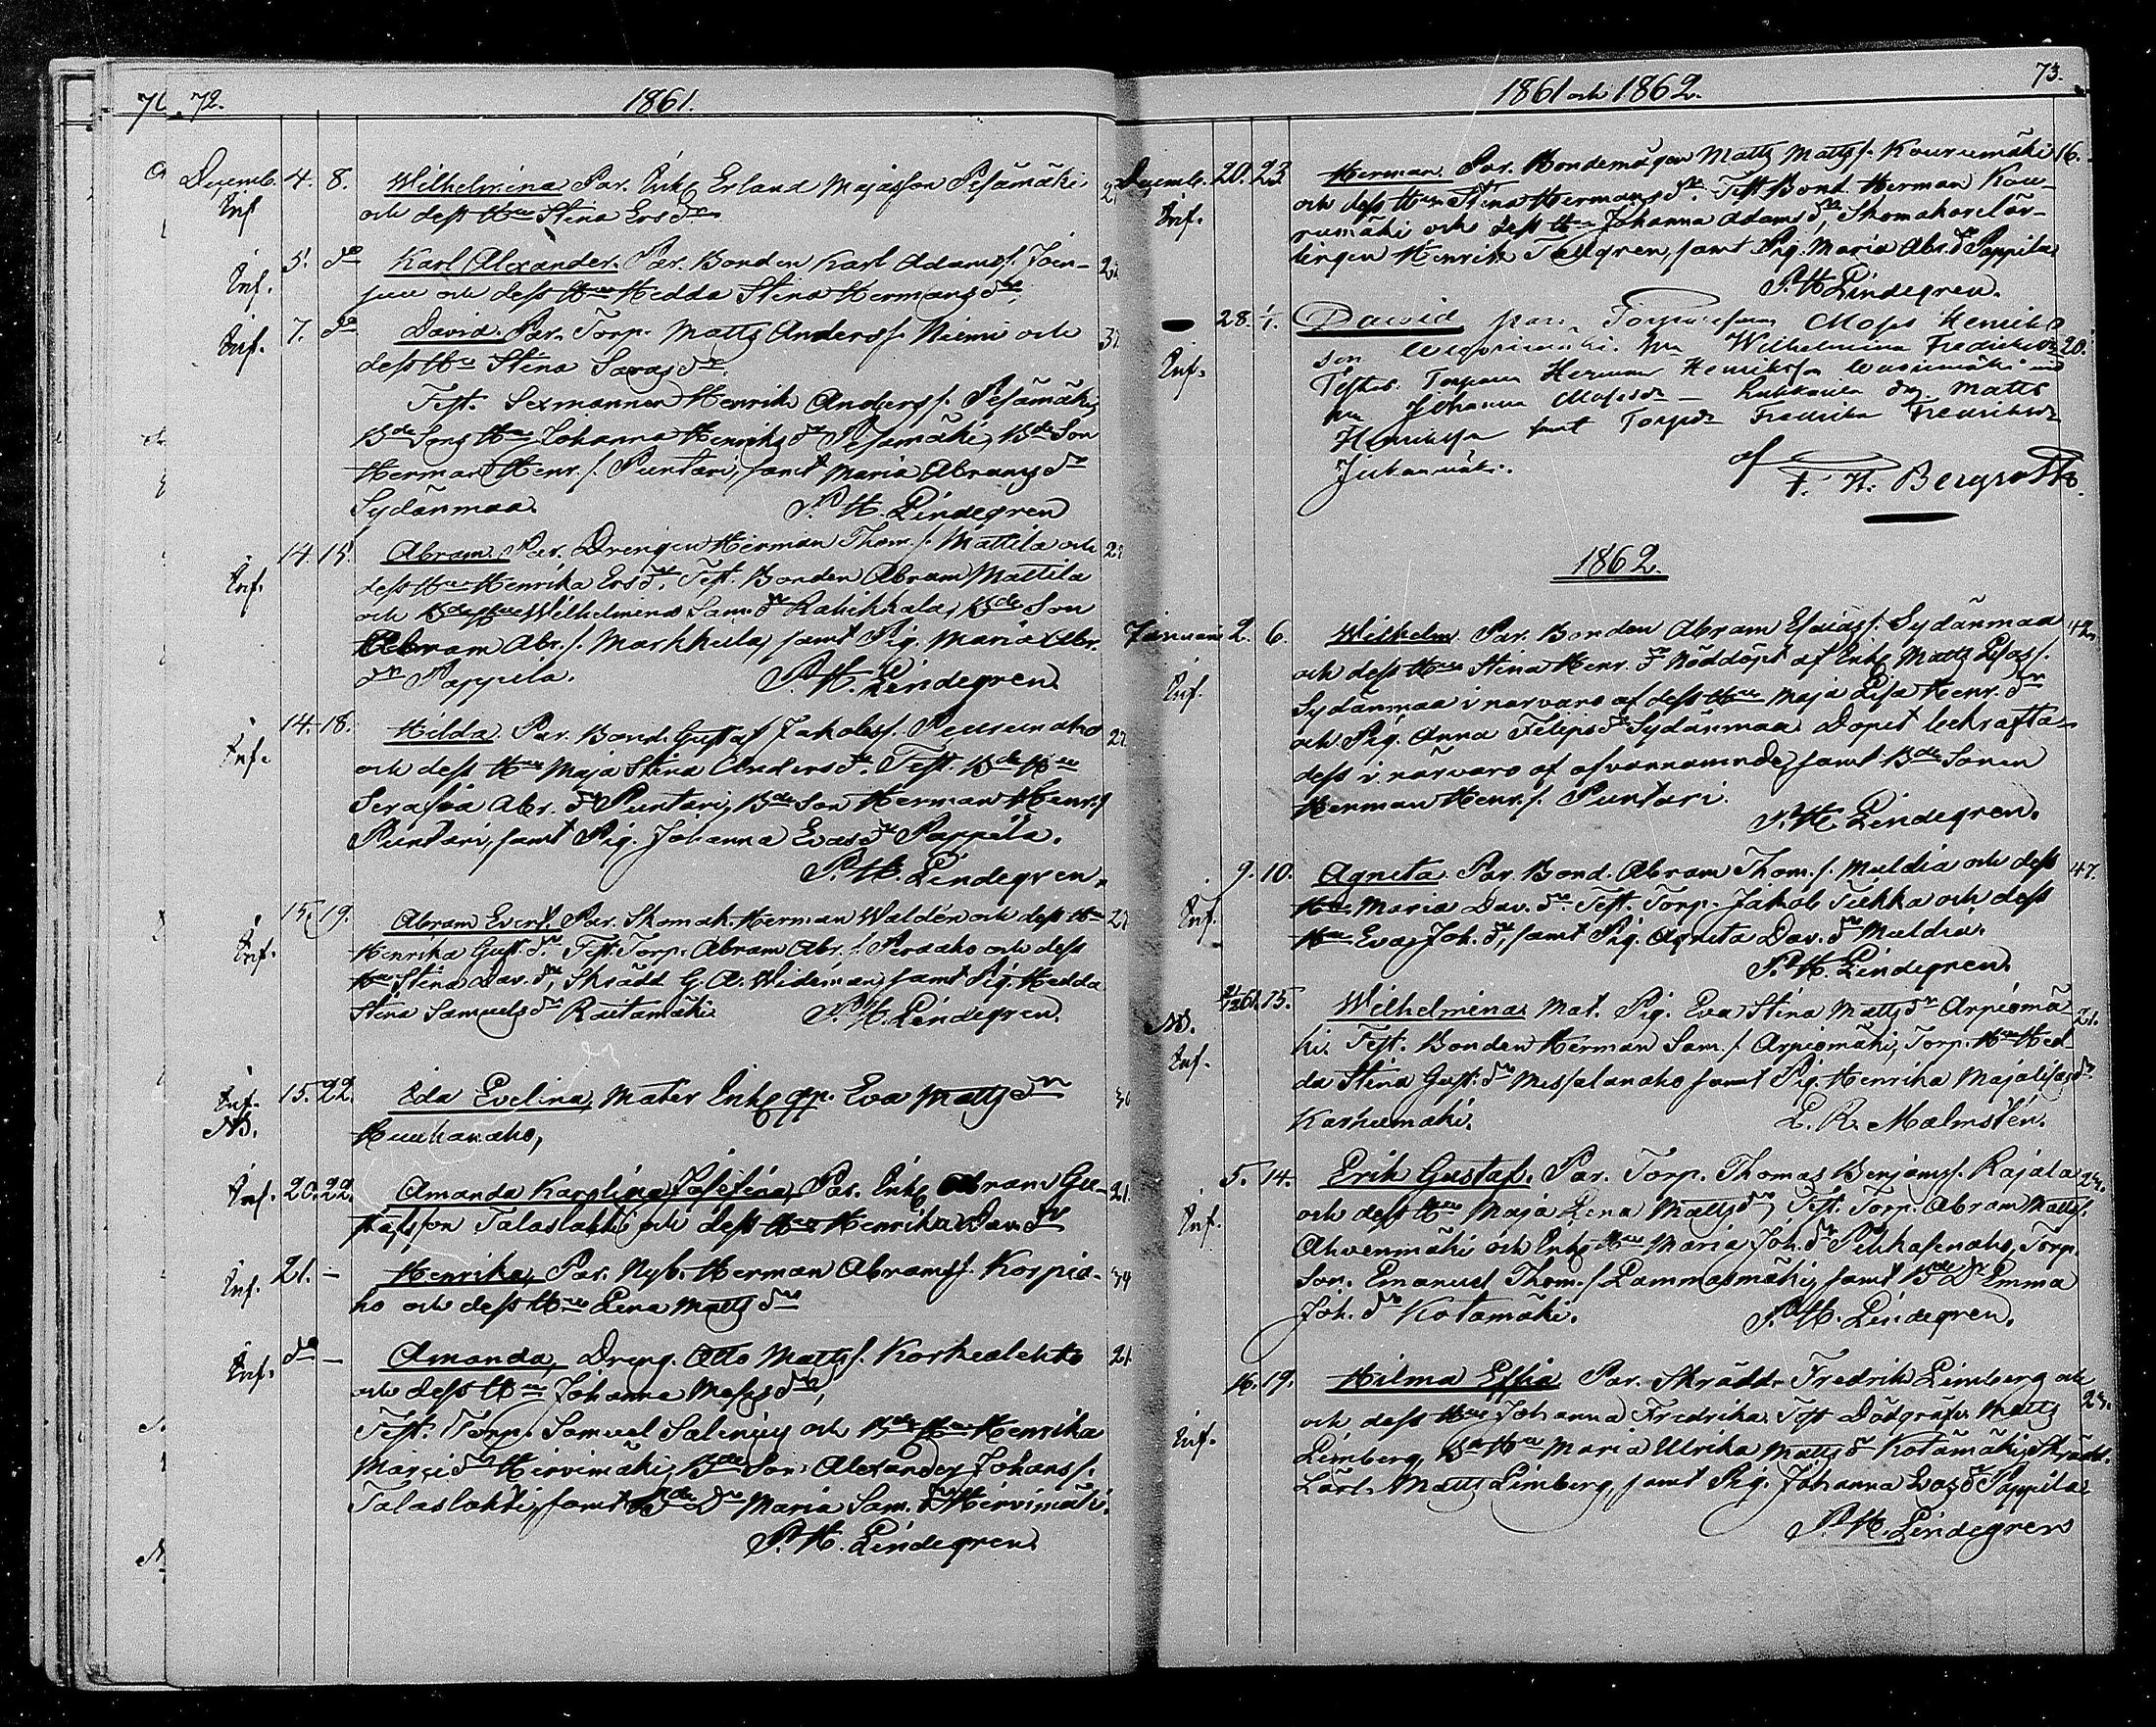 72.
1861.
Decemb. 4. 8. Wilhelmina Par. Inh. Erland Majasson Pesämäki
Inf och dess Hu Stina Ersdr
5. do Karl Alexander. Par. Bonden Karl Adamss. Joen-
Inf. suu och dess Hu Hedda Stina Hermansdr
7. do David. Par. Torp. Matts Anderss. Niemi och
Inf. dess Hu Stina Sarasdr
Test. Sexmannen Henrik Anderss. Pesämäki,
Bde Sons Hu Johanna Henriksdr Pesämäki, Bde Son
Herman Henr.s. Puntari, samt Maria Abramsdr
Sydänmaa. P. H. Lindegren
14. 15. Abram. Par. Drengen Herman Thom.s. Mattila och
Inf. dess Hu Henrika Ersdr. Test. Bonden Abram Mattila
och Bde Hu Wilhelmina Sam.dr Rahikkala, Bde Son
Abram Abr.s. Markkula, samt Pig. Maria Abr.
dr Pappila. P. H. Lindegren.
14. 18. Hilda. Par. Bond. Gustaf Jakobss. Peuraunaho
Inf. och dess Hu Maja Stina Andersdr. Test. Bde Hu
Serafia Abr.dr Puntari, Bde Son Herman Henr.s
Puntari, samt Pig. Johanna Evasdr Pappila.
P. H. Lindegren.
15. 19. Abram Evert. Par. Skomak. Herman Waldén och dess Hu
Inf. Henrika Gust.dr. Test. Torp. Abram Abr.s. Peraaho och dess
Hu Stina Dav.dr, Skrädd. G. A. Wideman, samt Pig. Hedda
Stina Samuelsdr Raitamäki P. H. Lindegren.
Inf. 15. 22. Ida Evelina, Mater Enk qp. Eva Mattsdr
NB. Huuhanaho,
Inf. 20. 22. Amanda Karolina Josefina, Par. Inh. Abram Gu- 21.
stafsson Talaslahti och dess Hu Henrika Dav.dr
Inf. 21. - Henrika, Par. Nyb. Herman Abramss. Korpia- 34
ho och dess Hu Lena Mattsdr
Inf. do - Amanda, Dreng. Otto Mattss. Koskealehto 21
och dess Hu Johanna Mosesdr,
Test. Torp. Samuel Salenius och Bde Hu Henrika
Mariasdr Hirvimäki, Bde Son Alexander Johanss.
Talaslahti, samt Bde Dr Maria Sam.dr Hirvimäki.
P. H. Lindegren.
1861 och 1862.
73.
Decemb. 20. 23 Herman. Par. Bondemågen Matts Mattss. Kourumäki 16.
Inf. och dess Hu Stina Hermansdr. Test. Bond. Herman Kou-
rumäki och dess Hu Johanna Adamsdr, Skomakarelär-
lingen Henrik Tallgren, samt Pig. Maria Abr.dr Pappila
P. H. Lindegren.
28. 1/1. David par. Torparesonen Moses Henriks
Inf. son hu Wilhelmina Fredriksdr 20.
Testes. Torparen Herman Henriksson
hu Johanna Mosesdr Matts
Henriksson samt Torpdr Fredrika Fredriksdr
Juhanmäki. af F. H. Bergroth.
1862.
Januarii 2. 6. Wilhelm. Par. Bonden Abram Esaiass. Sydänmaa 42.
Inf. och dess Hu Stina Henr.dr Nöddöpt af Inh. Matts Esass.
Sydänmaa i närvaro af dess Hu Maja Lisa Henr.dr
och Pig. Anna Filipsdr Sydänmaa. Dopet bekräfta-
des i närvaro af ofvannämnde, samt Bde Sonen
Herman Henr.s. Puntari. P. H. Lindegren.
9. 10. Agneta. Par. Bond. Abram Thom.s. Muldia och dess 47.
Inf. Hu Maria Dav.dr. Test. Torp. Jakob Tiekka och dess
Hu Eva Joh.dr, samt Pig. Agneta Dav.dr Muldia.
P. H. Lindegren.
15. Wilhelmina. Mat. Pig. Eva Stina Mattsdr Arpiomä- 21.
NB. Inf. ki. Test. Bonden Herman Sam.s. Arpiomäki, Torp. Hu Hed-
da Stina Gust.dr Missalanaho samt Pig. Henrika Majalisasdr
Karhumäki. L. R. Malmstén.
5. 14. Erik Gustaf. Par. Torp. Thomas Benjamss. Rajala
Inf. och dess Hu Maja Lena Mattsdr, Test. Torp. Abram Mattss.
Ahvenmäki och Enk Hu Maria Joh.dr Pihkasenaho, Torp.
Son. Emanuel Thom.s Lammasmäki, samt Bde Dr Emma
Joh.dr Kotamäki. P. H. Lindegren.
16. 19. Hilma Effia Par. Skrädd. Fredrik Limberg och
Inf. och dess Hu Johanna Fredrika. Test Dödgräfv. Matts
Limberg, Bde Hu Maria Ulrika Mattsdr Kotamäki, Skrädd.
Lärl. Matts Limberg, samt Pig. Johanna Evasdr Pappila
P. H. Lindegren